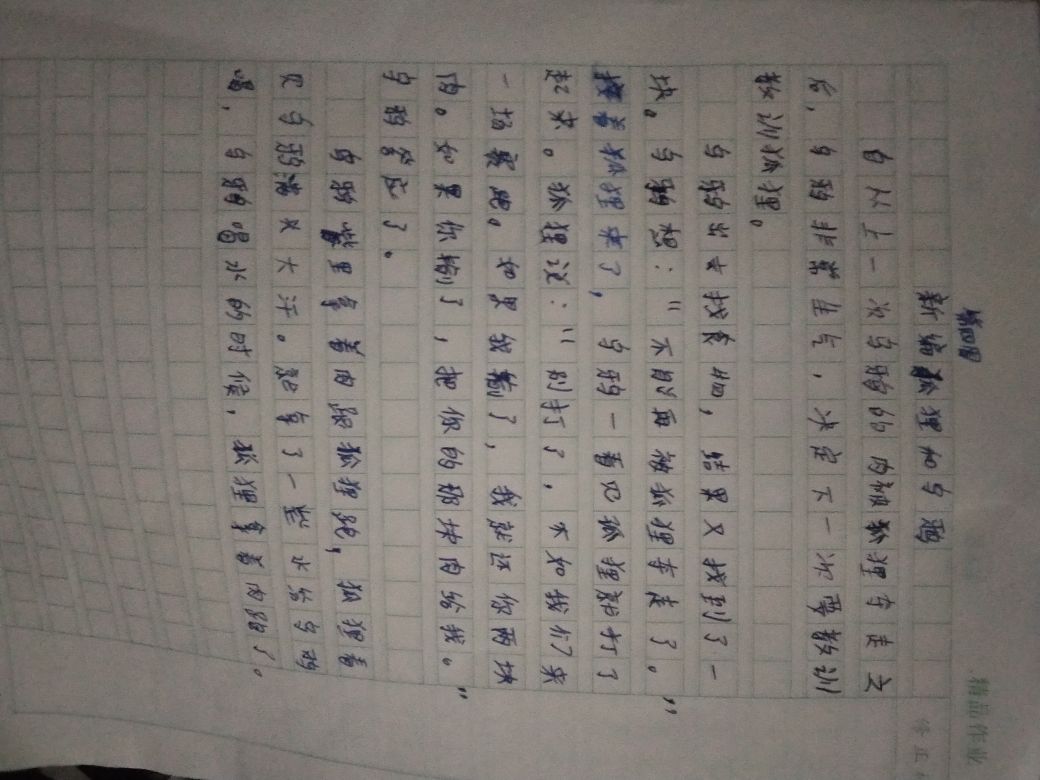 精品作业
新编狐狸和乌鸦
自从上一次乌鸦的肉被狐狸拿走之
后，乌鸦非常生气，决定下一次要教训
教训狐狸。
乌鸦出去找食品，结果又找到了一
块。乌鸦想：“不能再被狐狸拿走了。”
接着狐狸来了，乌鸦一看见狐狸就打了
起来。狐狸说：“别打了，不如我们来
一场赛跑。如果我输了，我就还你两块
肉。如果你输了，把你的那块肉给我。”
乌鸦答应了。
乌鸦嘴里拿着肉跟狐狸跑，狐狸看
见乌鸦满头大汗。就拿了一些水给乌鸦
喝，乌鸦喝水的时候，狐狸拿着肉跑了。